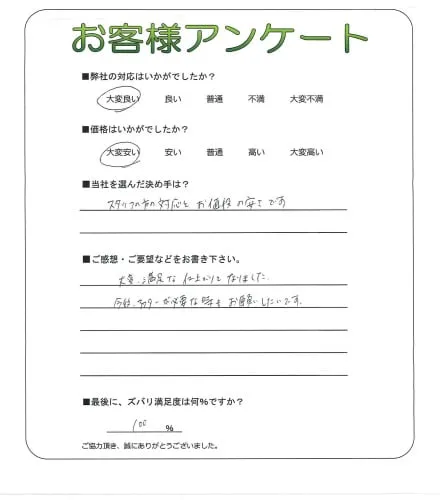 お客様アンケート
■弊社の対応はいかがでしたか？
大変良い 良い 普通 不満 大変不満
■価格はいかがでしたか？
大変安い 安い 普通 高い 大変高い
■当社を選んだ決め手は？
スタッフの方の対応と お価格の安さです
■ご感想・ご要望などをお書き下さい。
大変、満足な仕上がりになりました。
が必要な時も お願いしたいです。
■最後に、ズバリ満足度は何％ですか？
100 ％
ご協力頂き、誠にありがとうございました。